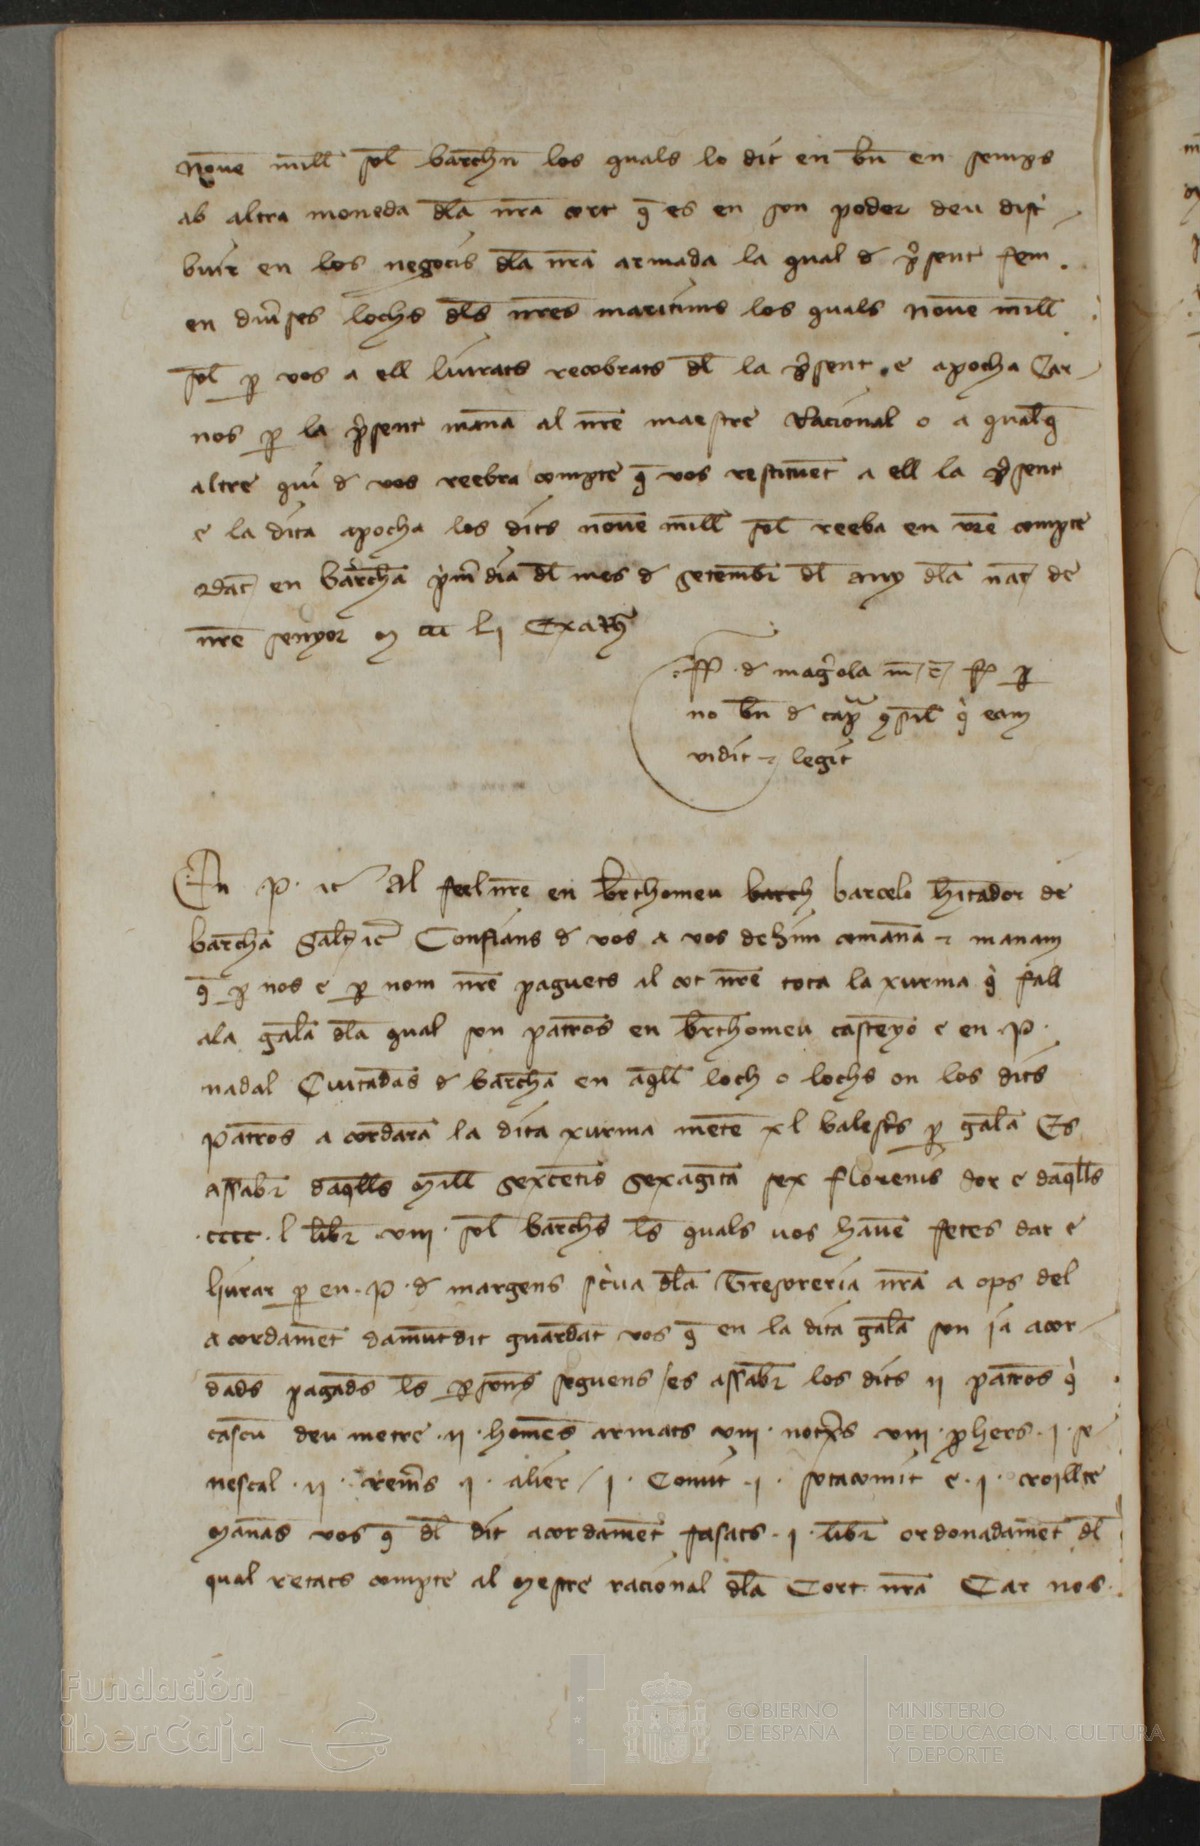 noue mill sol barchn los quals lo dit en bn en semps
ab altra moneda dla nra cort q es en son poder deu distri
buir en los negocis dla nra armada la qual d psent fem
en diuses lochs dls nres maritims los quals noue mill
sol p vos a ell liurats recobrats dl la psent e apocha Car
nos p la psent mana al nre maestre Racional o a qualq
altre qui d vos reebra compte q vos restituent a ell la psent
e la dita apocha los dits noue mill sol reeba en vre compte
dat en barchna pmr dia dl mes d setembr dl any dla nat de
nre senyor m ccc li Exatr
ff d magrola m c fo p
no bn d capr qsil q eam
vidit legit
En P. ic Al feel nre en brthomeu barch barcelo hitador de
barchna salt ic Confians d vos a vos dehim comana manam
q p nos e p nom nre paguets al cot nre tota la xurma q fall
ala gala dla qual son patrons en brthomeu casteyo e en P.
nadal Ciutadas d barchna en aqll loch o lochs on los dits
patrons a cordara la dita xurma mete xl balests p gala Es
assabr daqlls mill sexcetis sexaginta sex florenis dor e daqlls
cccc l libr viii sol barchns ls quals vos haue fetes dar e
liurar p en P d margens scriua dla Tresoreria nra a ops del
acordamet damut dit guardat vos q en la dita gala son ia acor
dads pagads ls psons seguens es assabr los dits ii patrons q
cascu deu metre ii homes armats viii notxs viii phers i se
nescal ii remrs i alier i Comit i sotacomit e i croillte
manas vos q dl dit acordamet fasats i libr ordonadamet dl
qual retats compte al mestre racional dla Cort nra Car nos
Fundación
iberCaja
GOBIERNO
DE ESPAÑA
MINISTERIO
DE EDUCACIÓN, CULTURA
Y DEPORTE